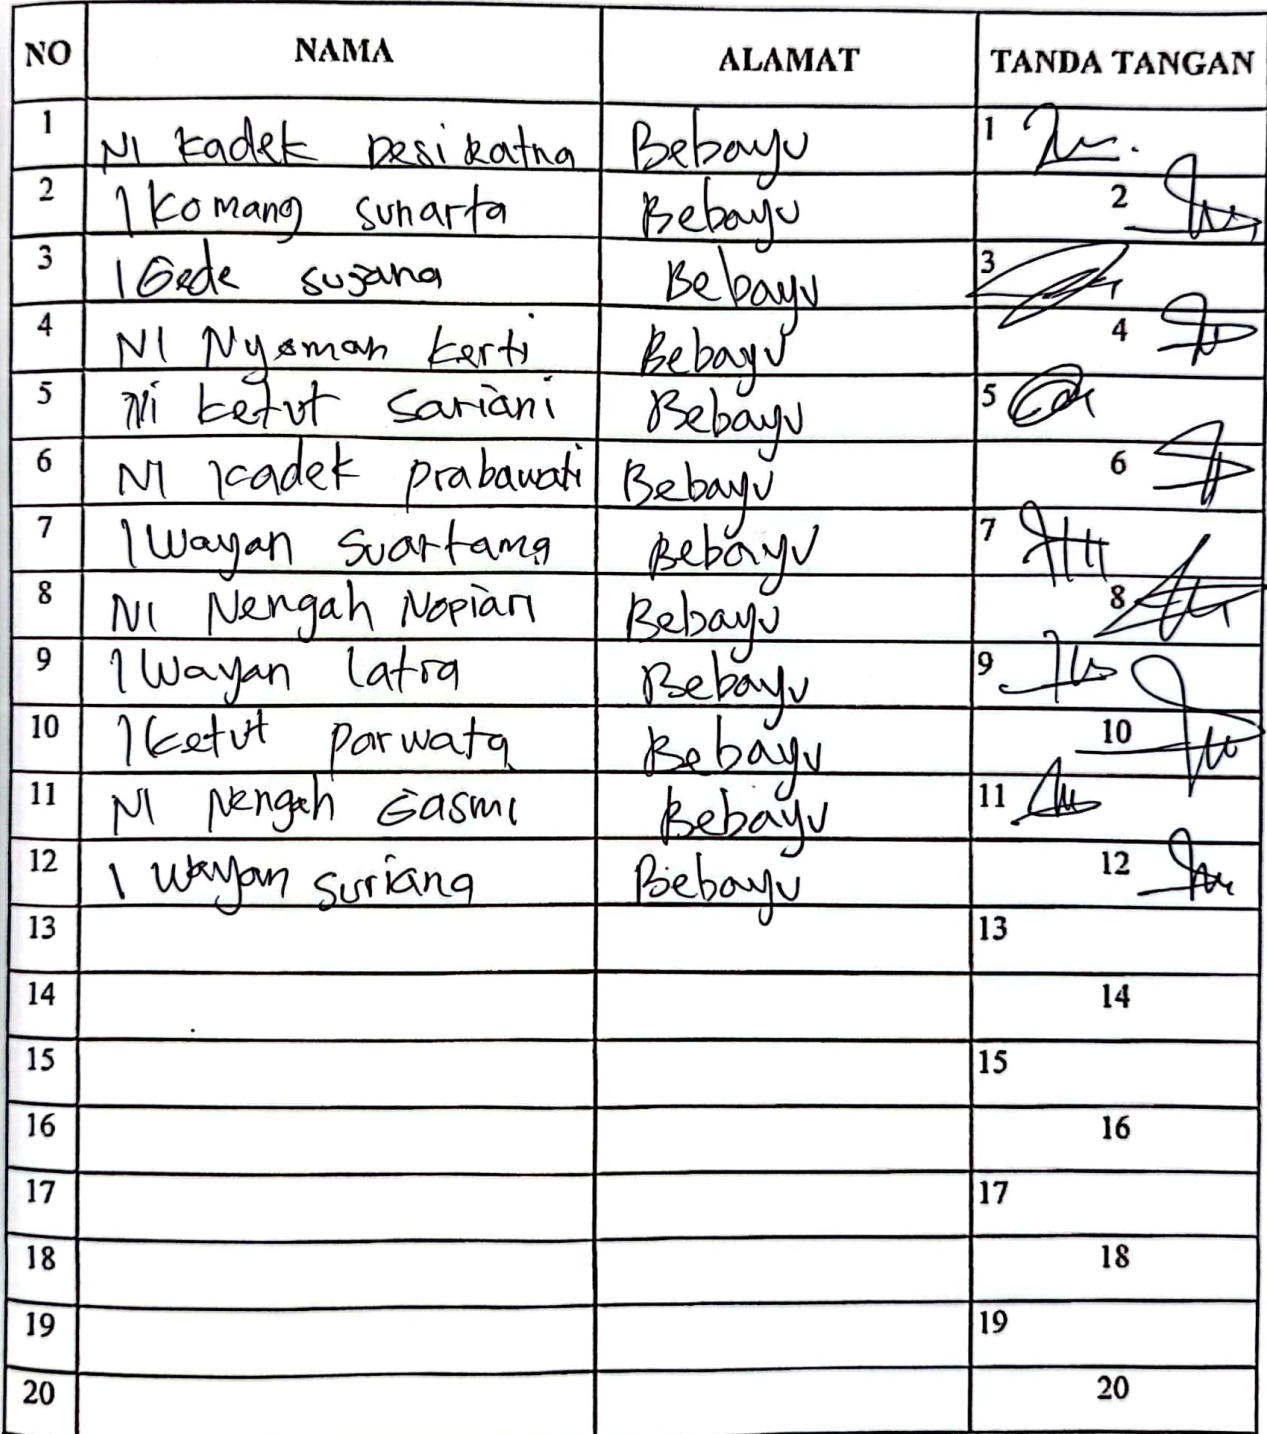 NO NAMA ALAMAT TANDA TANGAN
1 NI Kadek Desi Ratna Bebayu 1
2 I Komang Sunarta Bebayu 2
3 I Gede Sujana Bebayu 3
4 NI Nyoman Kerti Bebayu 4
5 Ni Ketut Sariani Bebayu 5
6 NI Kadek Prabawati Bebayu 6
7 I Wayan Suartama Bebayu 7
8 NI Nengah Nopiari Bebayu 8
9 I Wayan Latra Bebayu 9
10 I Ketut Parwata Bebayu 10
11 NI Nengah Gasmi Bebayu 11
12 I Wayan Suriana Bebayu 12
13 13
14 14
15 15
16 16
17 17
18 18
19 19
20 20